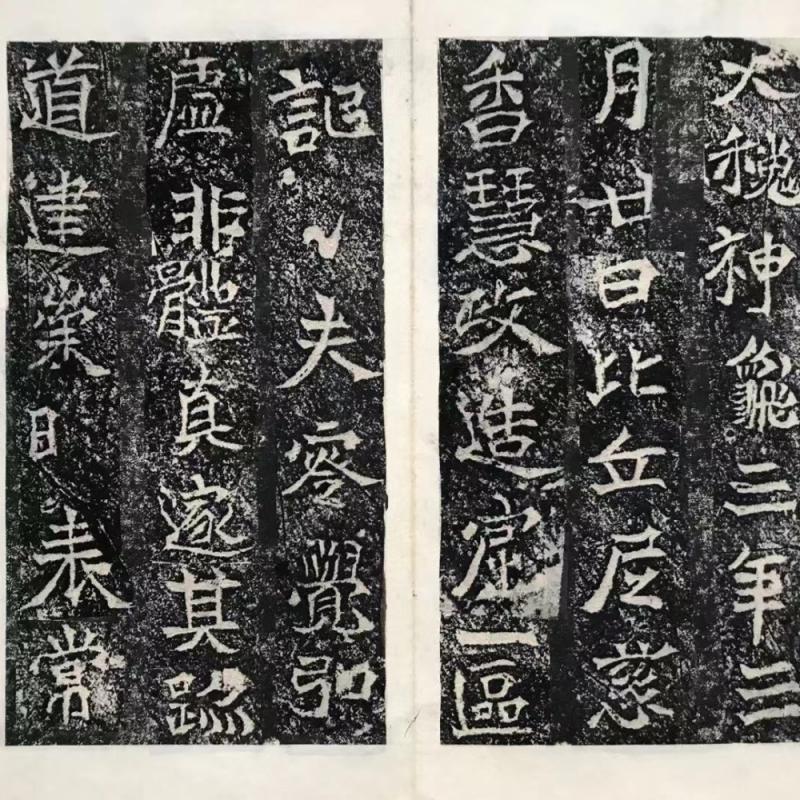 大魏神龜三年三
月廿日比丘尼慈
香慧政造窟一區
記〻夫零覺弘
虛非體真邃其跡
道建崇日表常